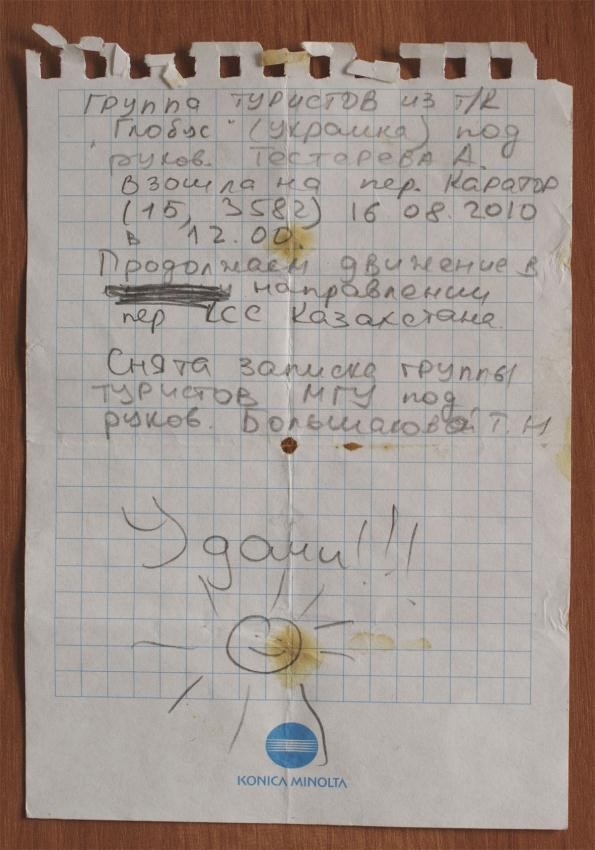 Группа туристов из т/к
"Глобус" (Украина) под
руков. Тестарева А.
взошла на пер. Каратор
(1Б, 3582) 16 08.2010
в 12.00.
Продолжаем движение в
направлении
пер КСС Казахстана.
Снята записка группы
туристов МГУ под
руков. Большаковой Т. Н
Удачи!!!
KONICA MINOLTA